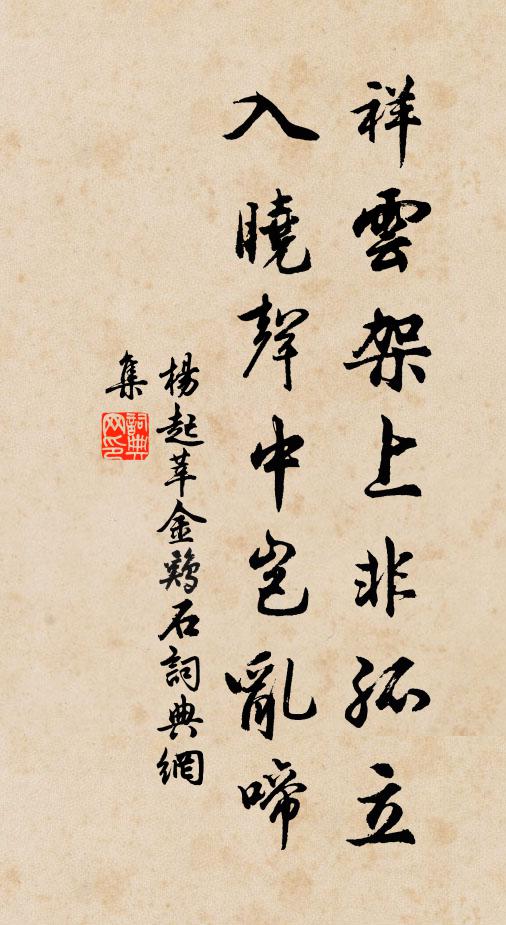 祥雲架上非孤立
入曉聲中豈亂啼
楊起莘金鷄石詞典網
集
詞典
网印